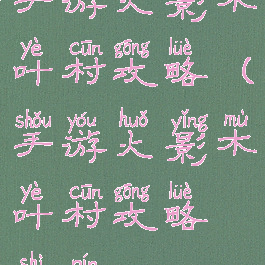 手游火影木
yè cūn gōng lüè
叶村攻略（
shǒu yóu huǒ yǐng mù
手游火影木
yè cūn gōng lüè
叶村攻略
shì pín